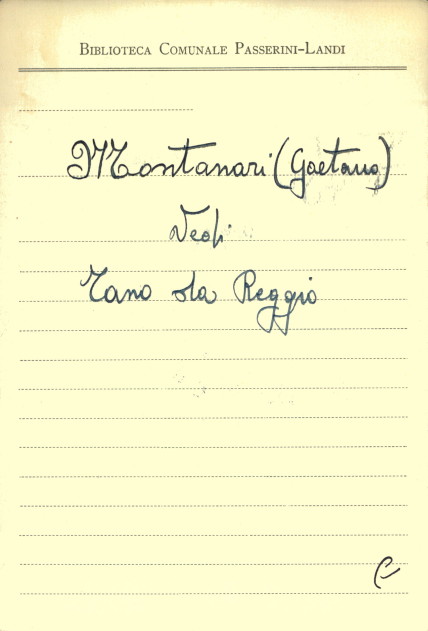 BIBLIOTECA COMUNALE PASSERINI-LANDI
Montanari (Gaetano)
Vedi
Tano da Reggio